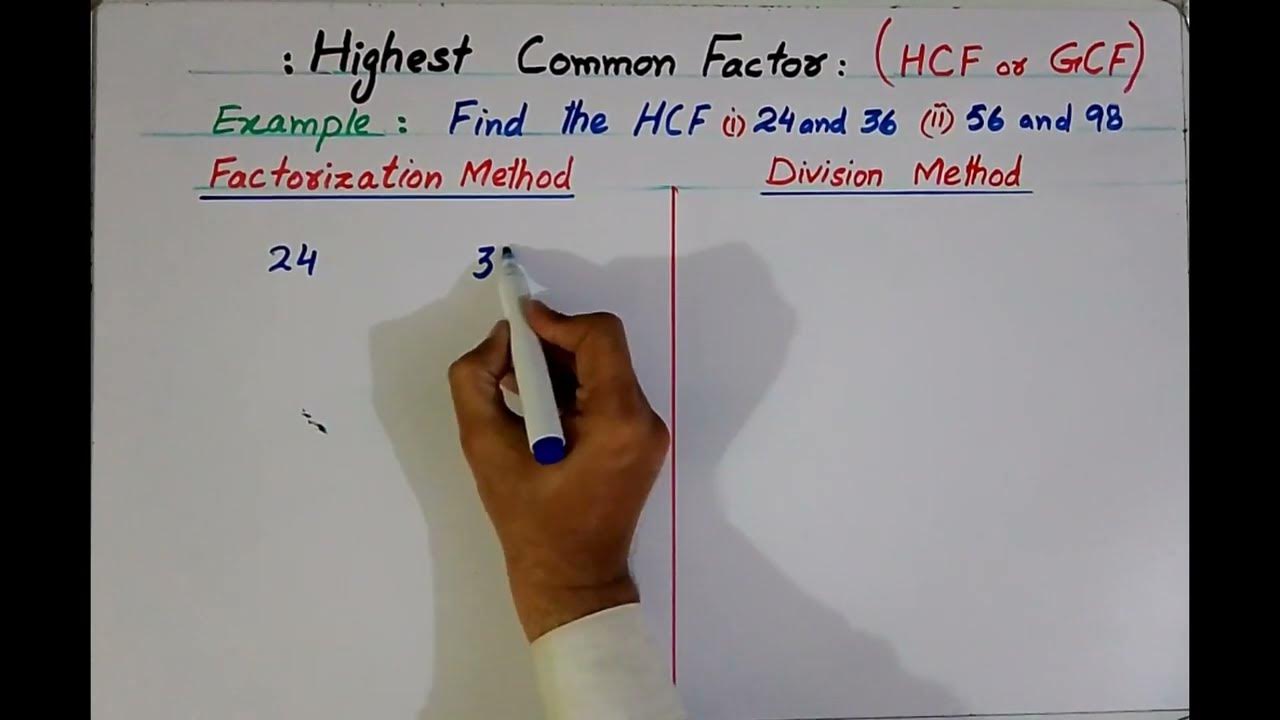 : Highest Common Factor: (HCF or GCF)
Example: Find the HCF (i) 24 and 36 (ii) 56 and 98
Factorization Method Division Method
24 3